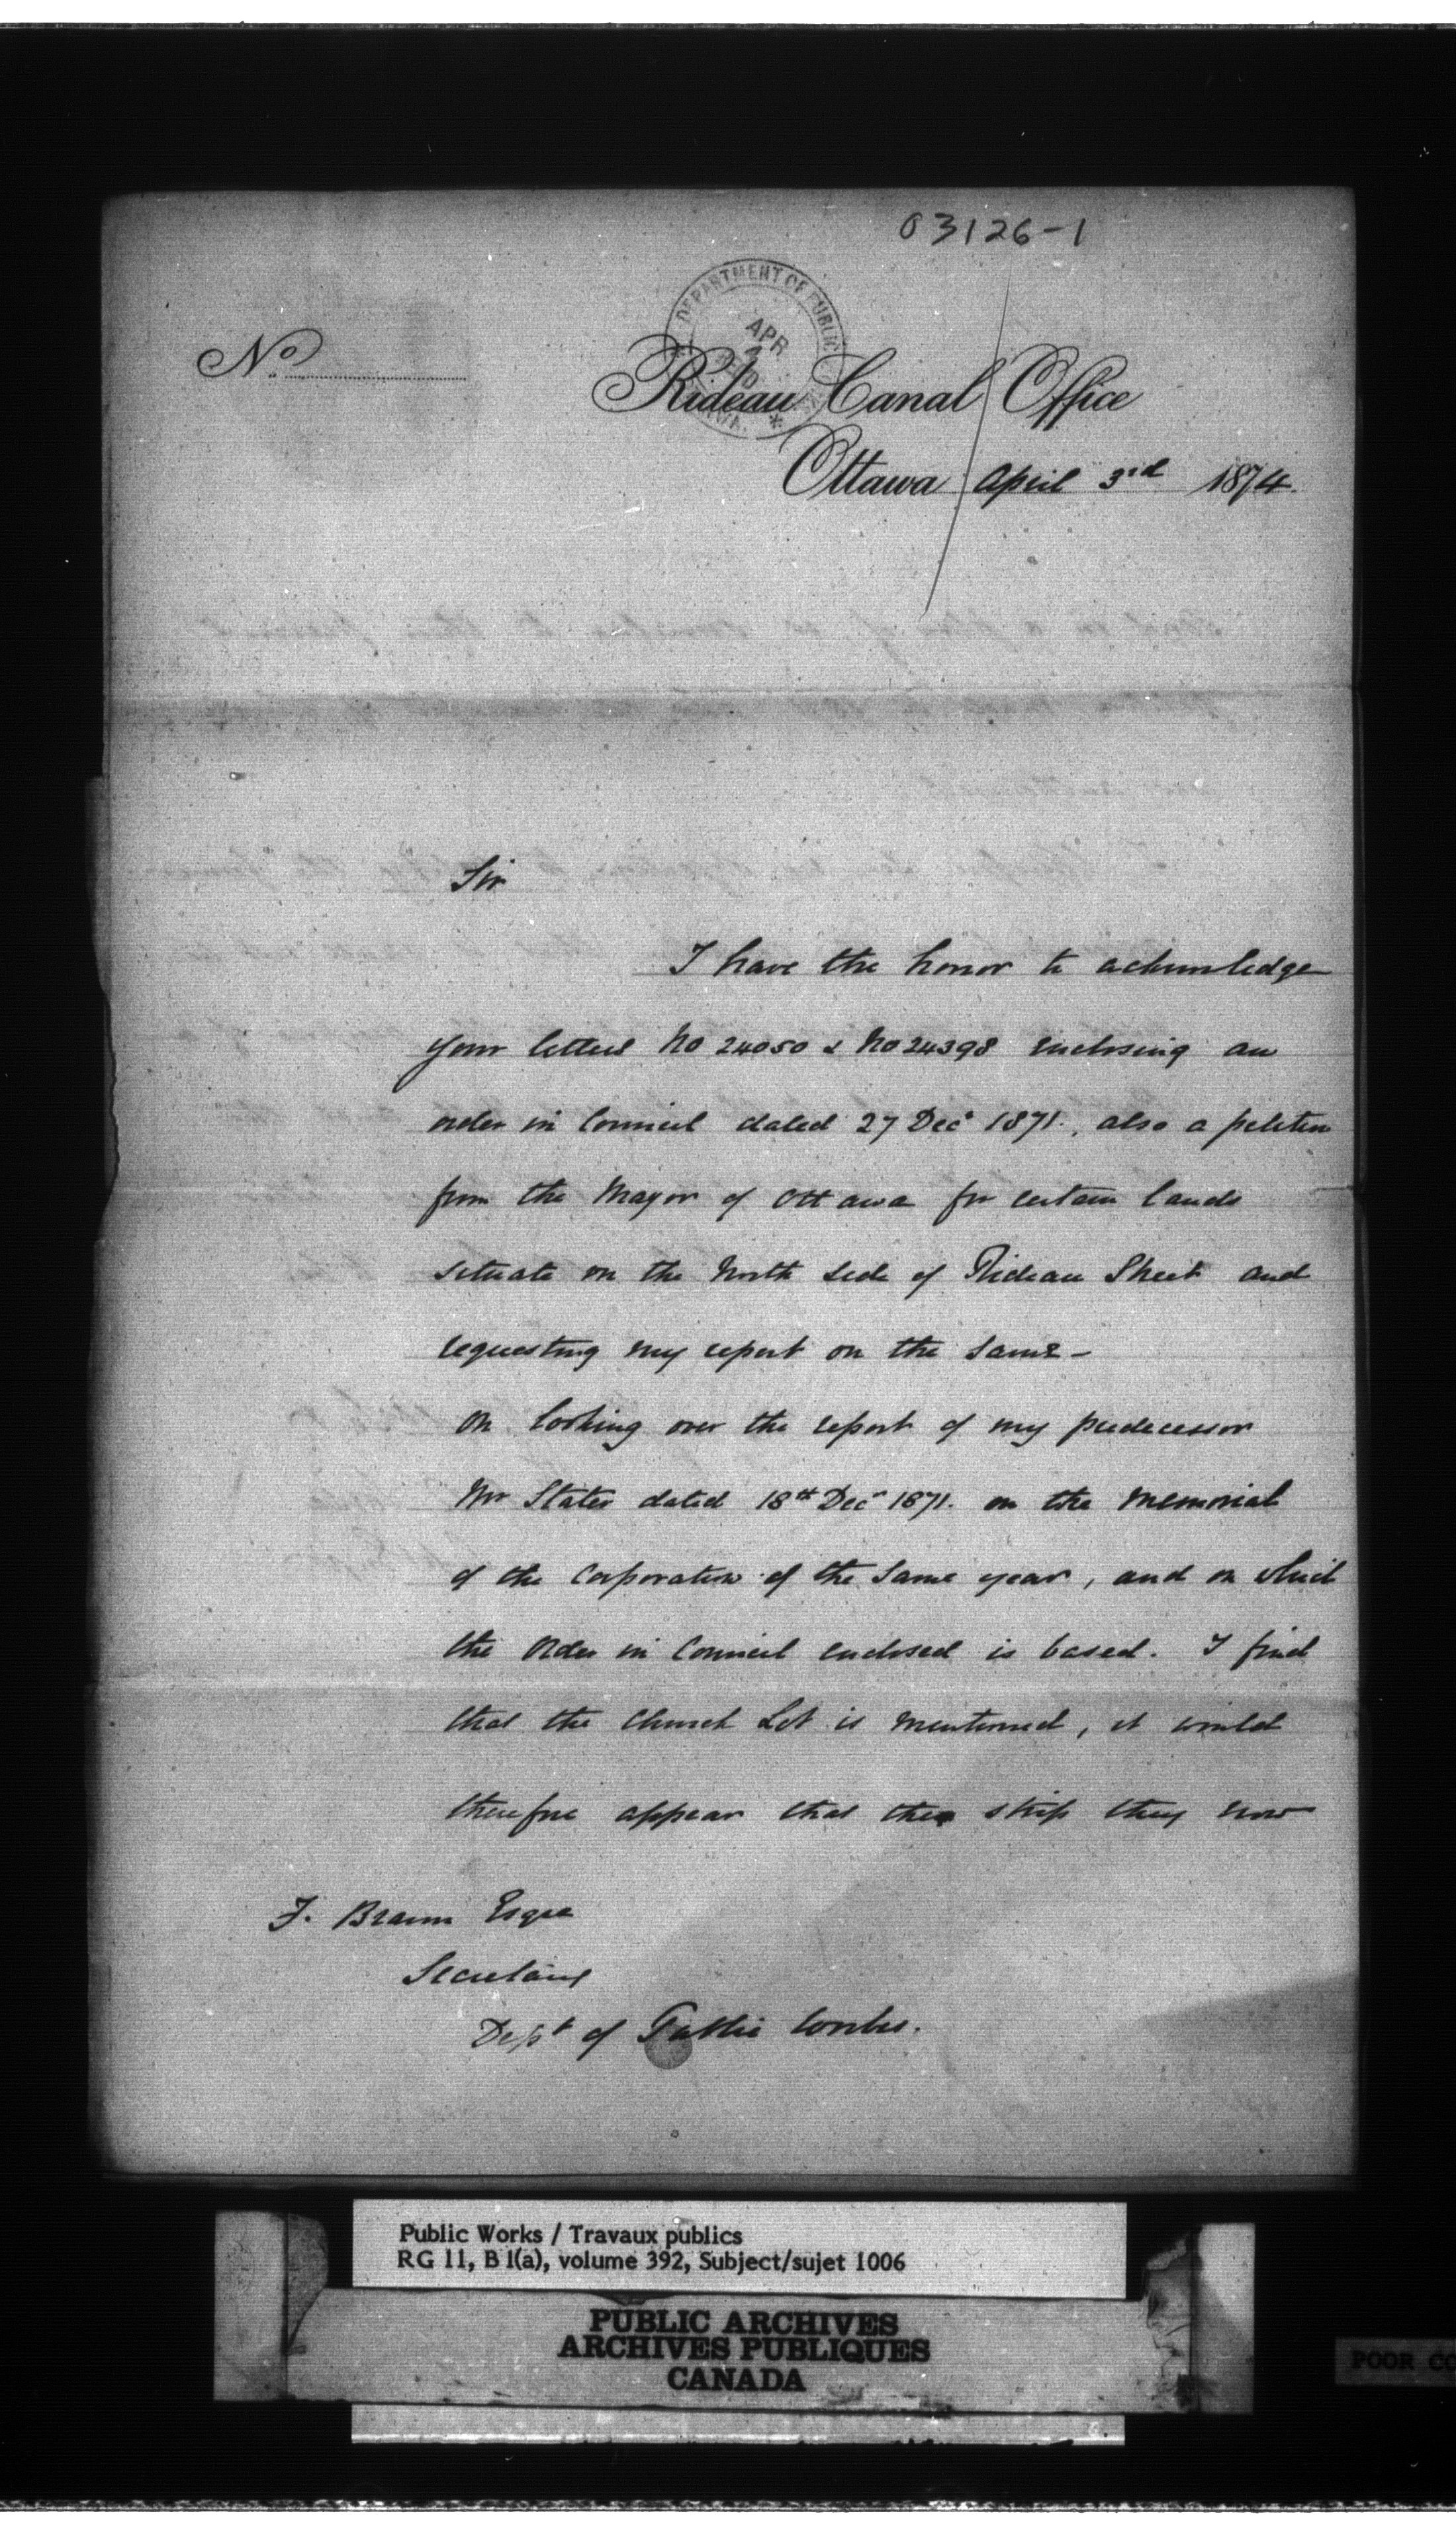 03126-1
DEPARTMENT OF PUBLIC
APR
3
No
Rideau Canal Office
Ottawa April 3rd 1874.
Sir
I have the honor to acknowledge
your letters No 24050 & No 24398 enclosing an
order in Council dated 27 Decr 1871., also a petition
from the Mayor of Ottawa for certain lands
situate on the North side of Rideau Street and
requesting my report on the same -
On looking over the report of my predecessor
Mr Slater dated 18th Decr 1871. on the memorial
of the Corporation of the same year, and on which
the Order in Council enclosed is based. I find
that the Church Lot is mentioned, it would
therefore appear that the strip they now
F. Braun Esqre
Secretary
Dept of Public Works.
Public Works / Travaux publics
RG 11, B 1(a), volume 392, Subject/sujet 1006
PUBLIC ARCHIVES
ARCHIVES PUBLIQUES
CANADA
POOR CO